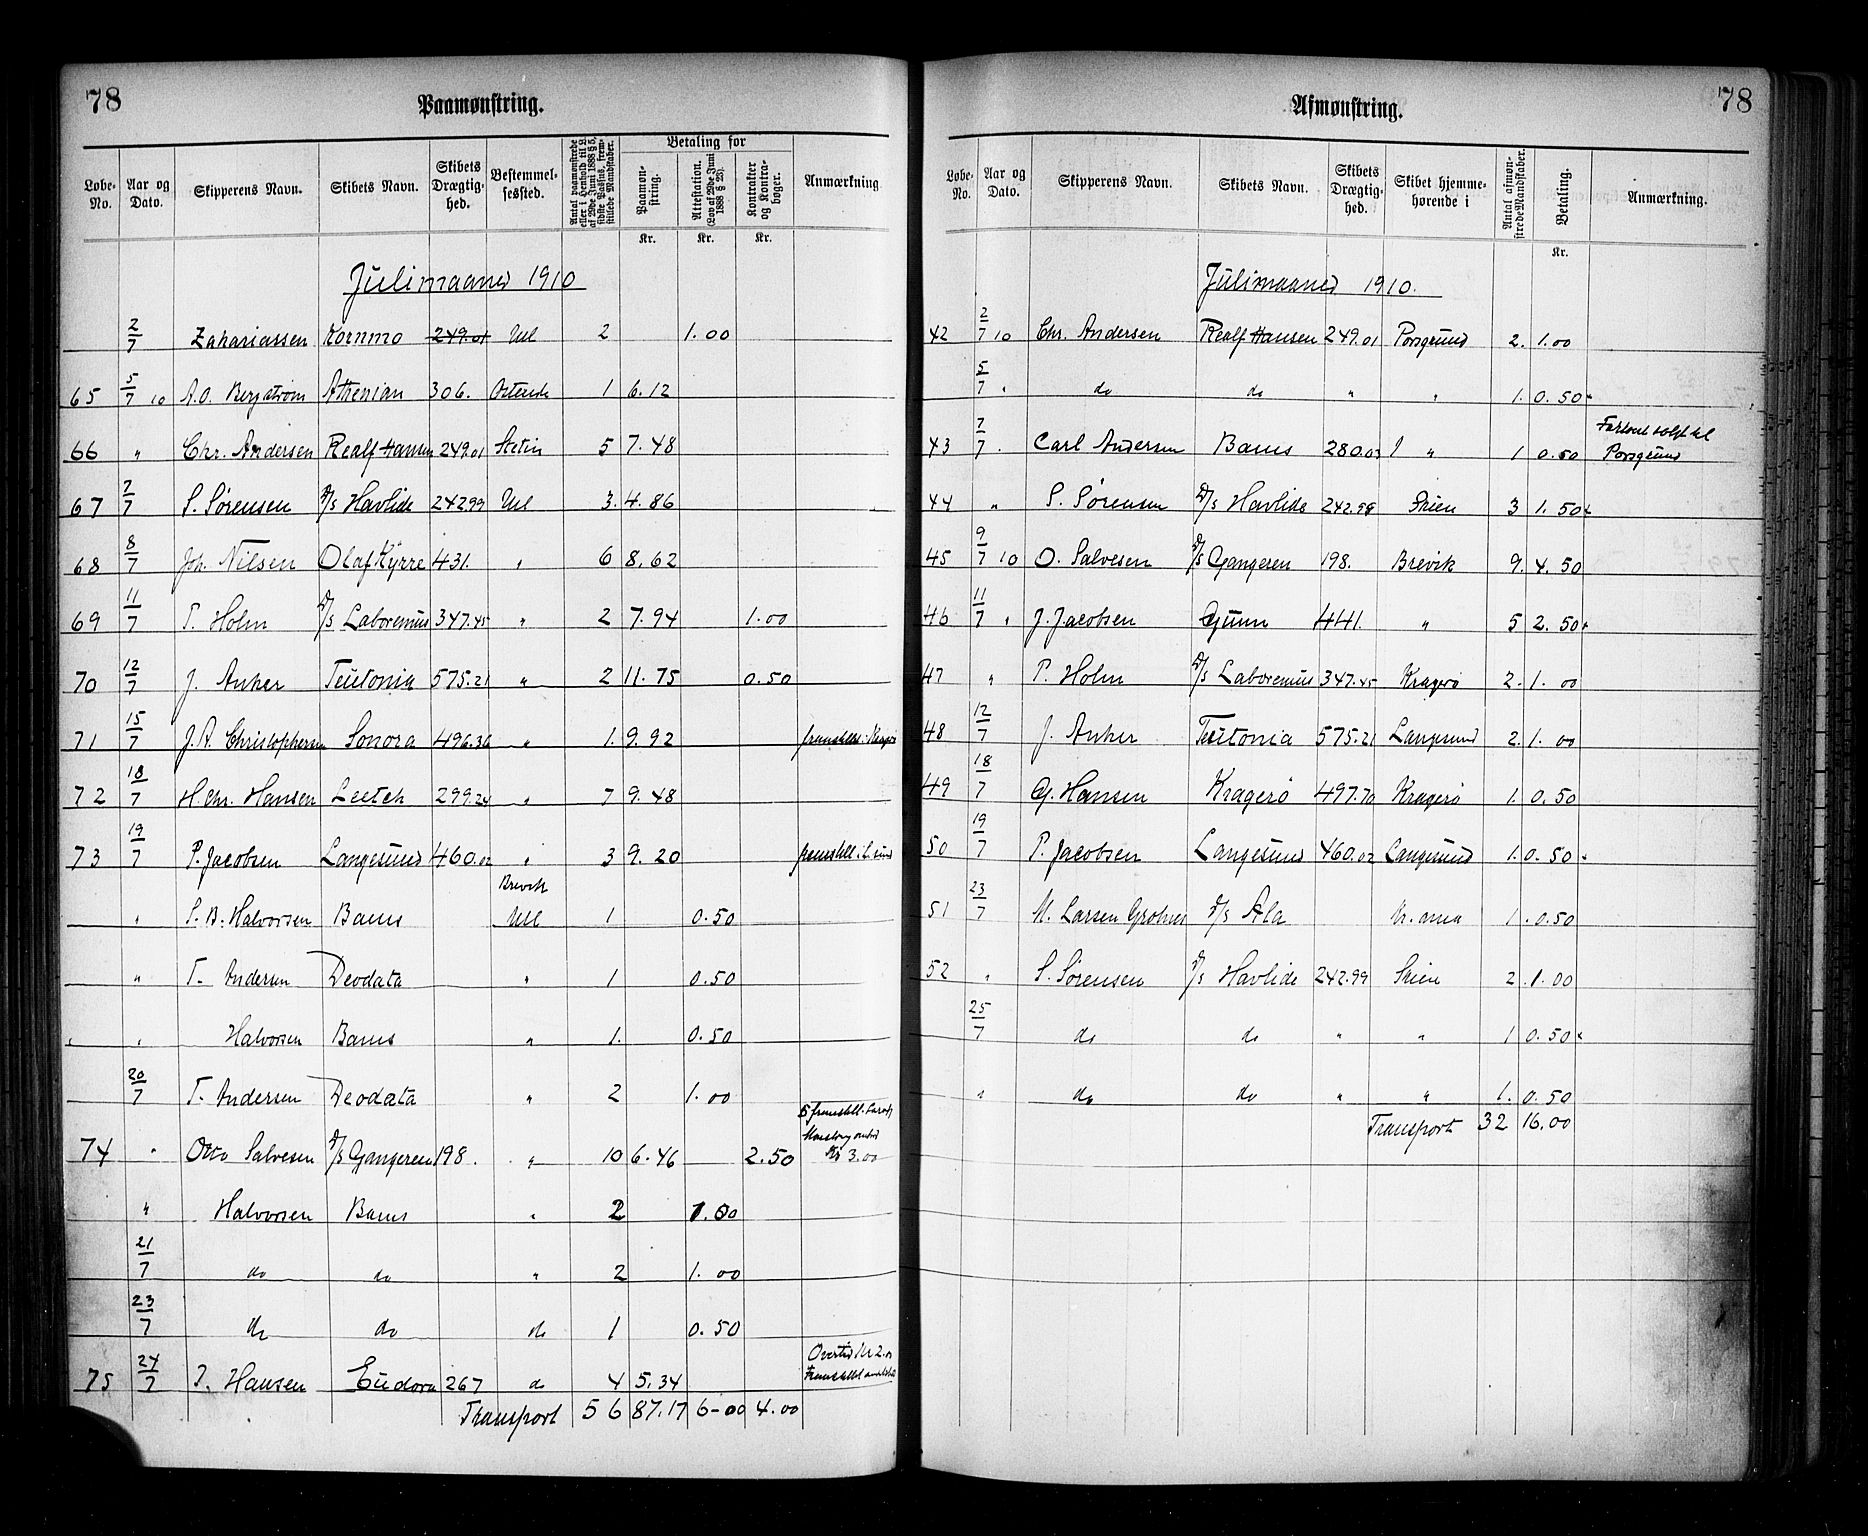 78
Paamønstring.
Løbe-No. Aar og Dato. Skipperens Navn. Skibets Navn. Skibets Drægtighed. Bestemmelsessted. Antal paamønstrede eller i Henhold til L. af 29de Juni 1888 § 5, sidste Passus, fremstillede Mandskaber. Betaling for Paamønstring. Attestation. (Lov af 29de Juni 1888 § 23). Kontrakter og Kontrabøger. Anmærkning
Kr. Kr. Kr.
Julimaaned 1910
2/7 Zahariassen Kornmo 249.01 Udl 2 1.00
65 5/7 10 A.O. Bergstrøm Athenian 306. Ostende 1 6.12
66 " Chr. Andersen Realf Hansen 249.01 Stetin 5 7.48
67 7/7 S. Sørensen D/s Havlide 242.99 Udl 3. 4.86
68 8/7 Joh. Nilsen Olaf Kyrre 431. " 6 8.62
69 11/7 P. Holm D/s Laboremus 347.45 " 2 7.94 1.00
70 12/7 J. Anker Teutonia 575.21 " 2 11.75 0.50
71 15/7 J.A. Christophersen Sonora 496.36 " 1. 9.92 fremstillet i Kragerø
72 18/7 H. Chr. Hansen Leetch 299.24 " 7 9.48
73 19/7 P. Jacobsen Langesund 460.02 " 3 9.20 fremstill. i L.sund
Brevik
" S.B. Halvorsen Bams Udl 1 0.50
" T. Andersen Deodata " 1 0.50
" Halvorsen Bams " 1. 0.50
20/7 T. Andersen Deodata " 2 1.00
74 " Otto Salvesen D/s Gangeren 198. " 10 6.46 2.50 5 fremstill. Kr 3.00
" Halvorsen Bams " 2 1.00
21/7 do do " 2 1.00
23/7 do do do 1 0.50
75 24/7 J. Hansen Eudora 267 do 4 5.34 Overtid Kr 2.00 Fremstillet
Transport 56 87.17 6-00 4.00
78
Afmønstring.
Løbe-No. Aar og Dato. Skipperens Navn. Skibets Navn. Skibets Drægtighed. Skibet hjemmehørende i Antal afmønstrede Mandskaber. Betaling. Anmærkning.
Kr.
Julimaaned 1910.
42 2/7 10 Chr. Andersen Realf Hansen 249.01 Porsgrund 2. 1.00
5/7 " do do " " 1. 0.50
43 7/7 . Carl Andersen Bams 280.03 " 1 0.50 solgt til Porsgrund
44 " S. Sørensen D/s Havlide 242.99 Skien 3 1.50
45 9/7 10 O. Salvesen D/s Gangeren 198. Brevik 9. 4.50
46 11/7 " J. Jacobsen Gunn 441. " 5 2.50
47 " P. Holm D/s Laboremus 347.45 Kragerø 2. 1.00
48 12/7 J. Anker Teutonia 575.21 Langesund 2. 1.00
49 18/7 G. Hansen Kragerø 497.70 Kragerø 1. 0.50
50 19/7 P. Jacobsen Langesund 460.02 Langesund 1. 0.50
51 23/7 M. Larsen D/s Ala 1. 0.50
52 " S. Sørensen D/s Havlide 242.99 Skien 2. 1.00
25/7 do do " " 1 0.50
" do do " " 1. 0.50
Transport 32 16.00